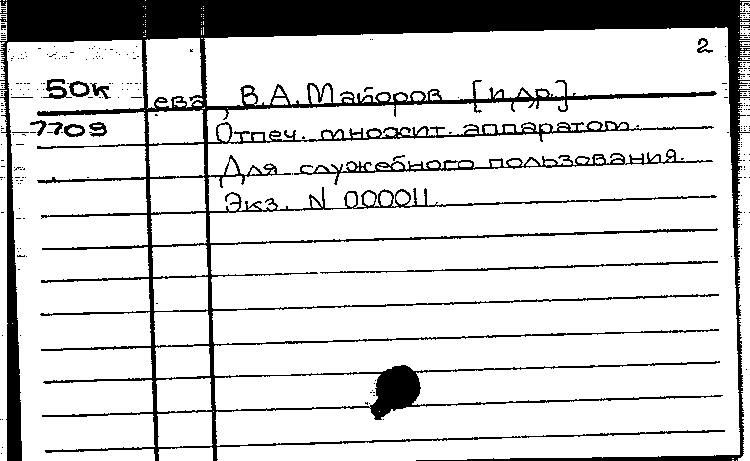 2
50к ева, В.А. Майоров [и др.].
7709 Отпеч. множит. аппаратом.
Для служебного пользования.
Экз. N 000011